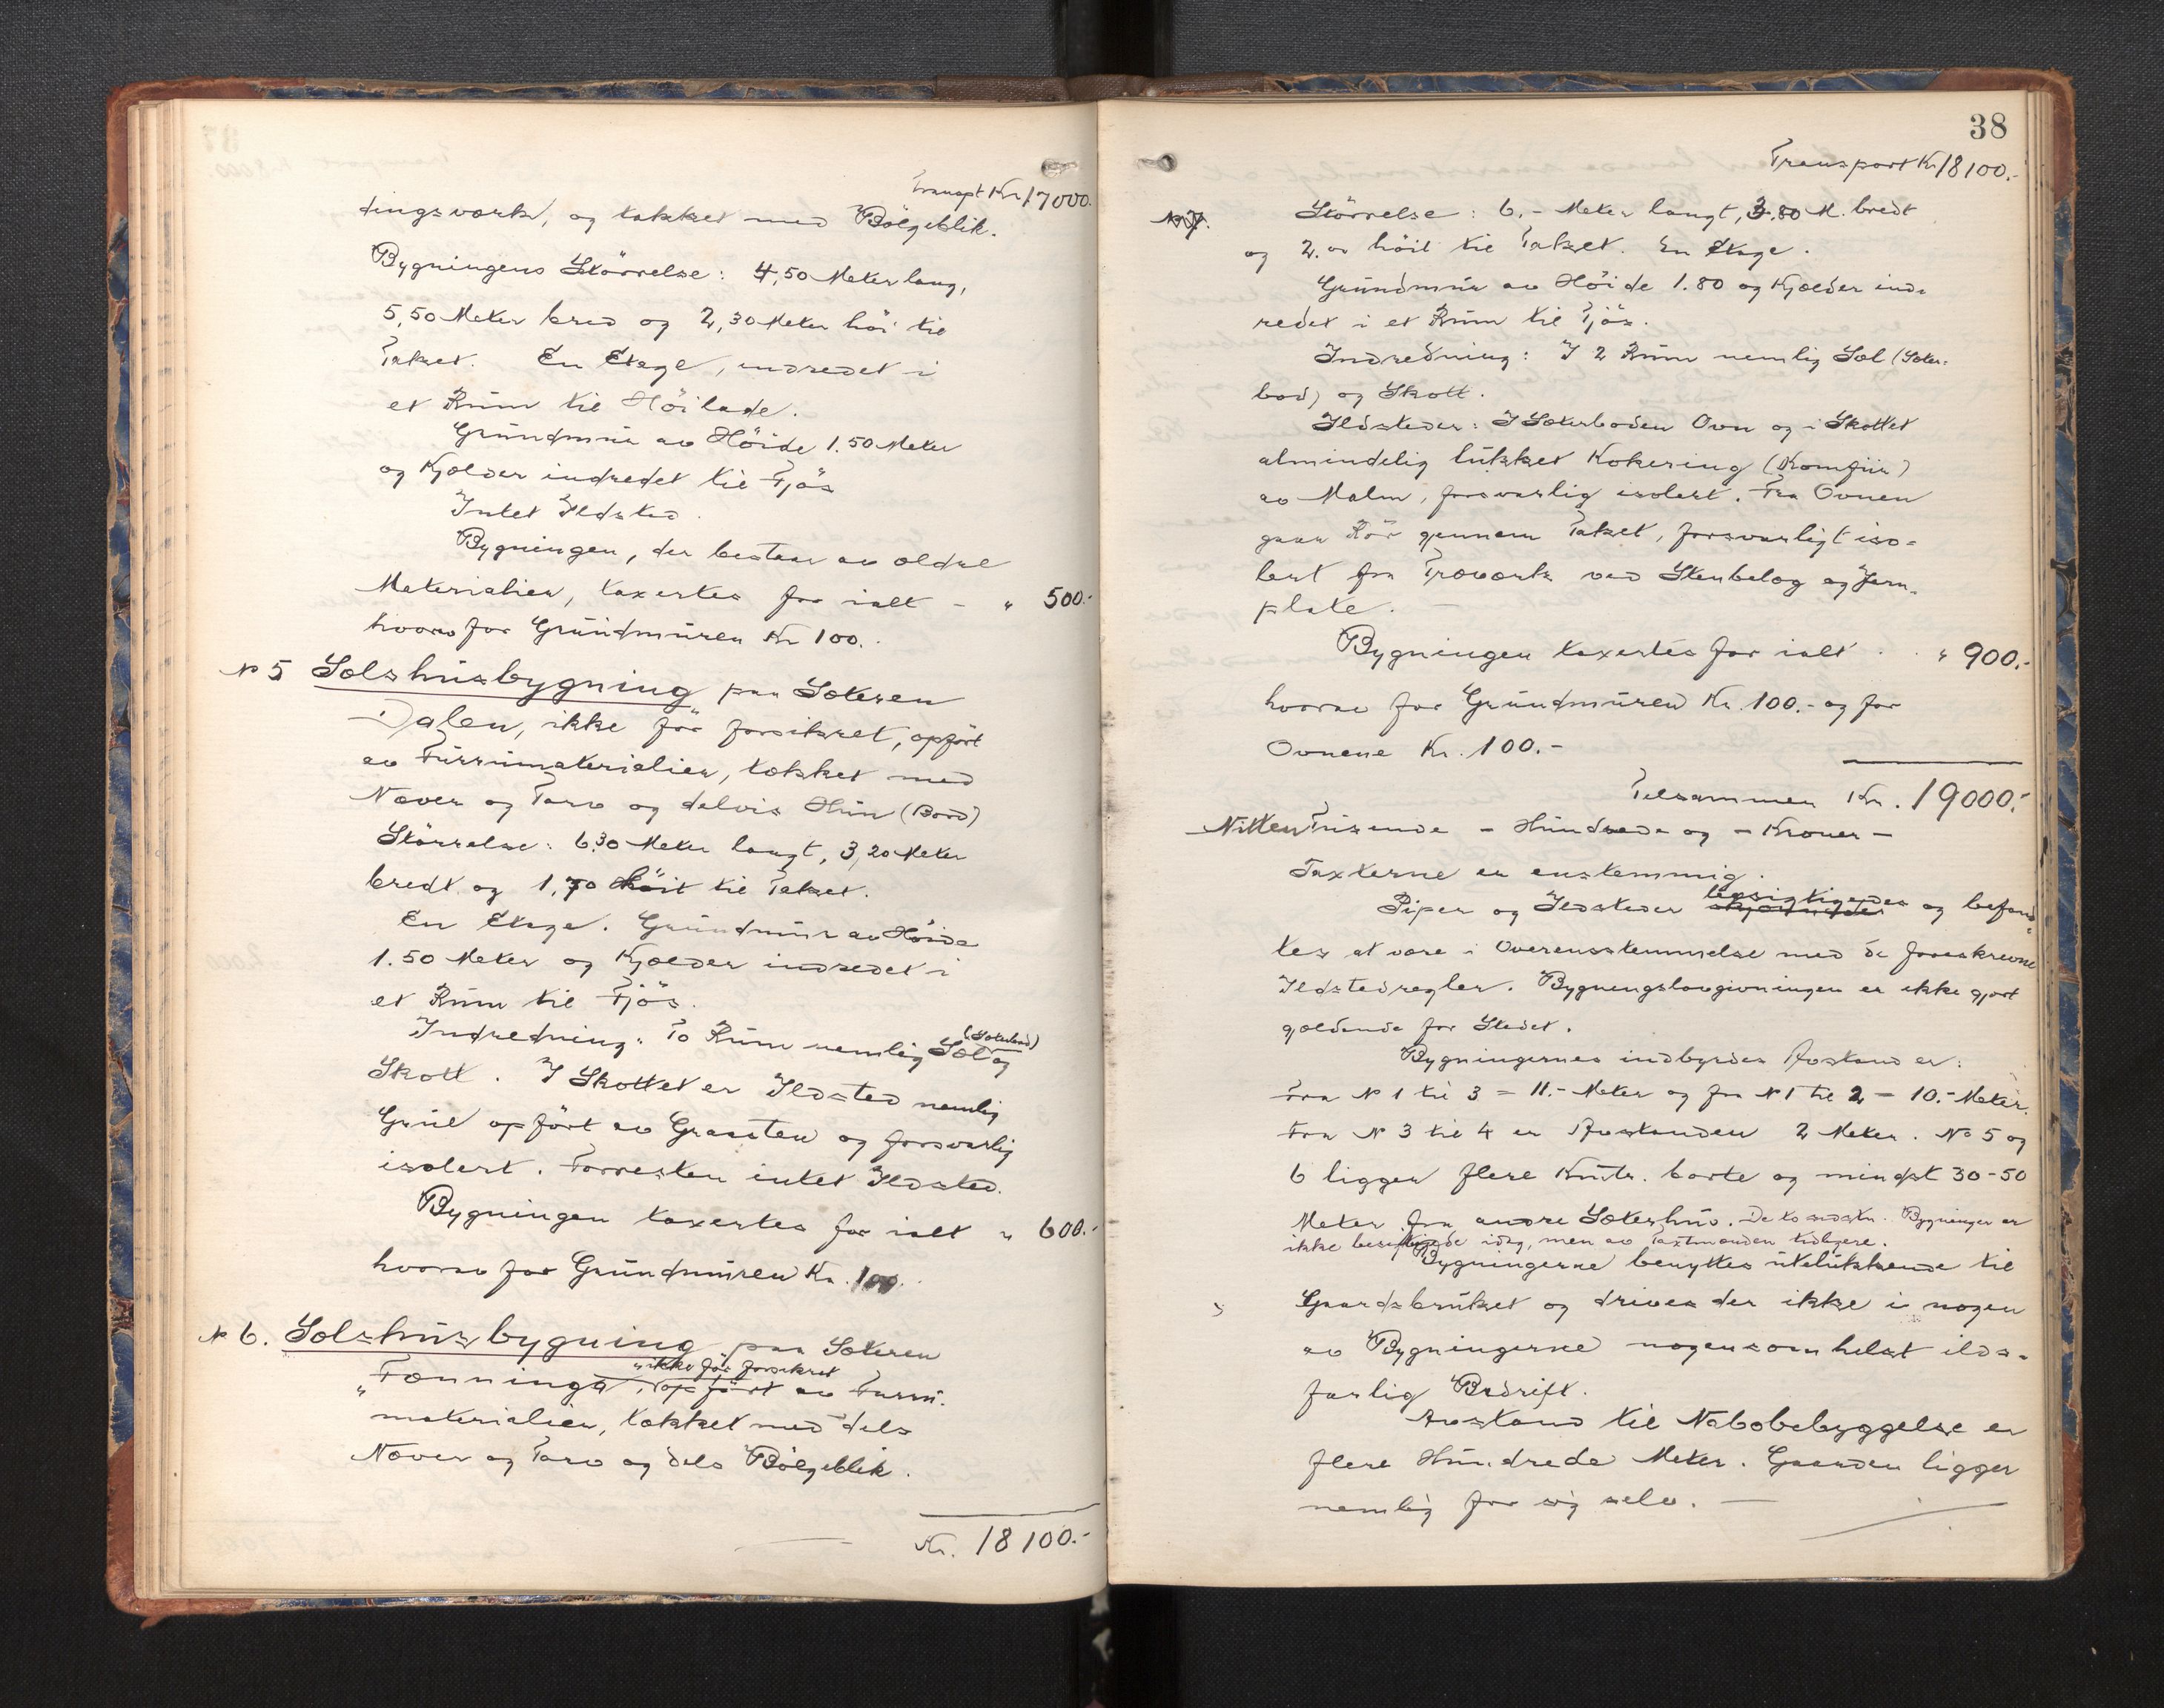 Transpt Kr 17000.
dingsværk, og tækket med Bölgeblik.
Bygningens Störrelse: 4,50 Meter lang,
5,50 Meter bred og 2,30 Meter höi til
Taket. En Etage, indredet i
et Rum til Höilade.
Grundmur av Höide 1.50 Meter
og Kjælder indredet til Fjös
Intet Ildsted.
Bygningen, der bestaar av ældre
Materialier, taxertes for ialt - " 500.-
hvorav for Grundmuren Kr 100.
No 5 Sælshusbygning paa Sæteren
Dalen, ikke för forsikret, opfört
av Furumaterialier, tækket med
Næver og Torv og delvis Hun (Bord)
Störrelse: 6.30 Meter langt, 3,20 Meter
bredt og 1,70 höit til Taket.
En Etage. Grundmur av Höide
1.50 Meter og Kjælder indredet i
et Rum til Fjös.
Indredning: To Rum nemlig Sæl (Sæterbod) og
Skott. I Skottet er Ildsted nemlig
Grue opfört av Graasten og forsvarlig
isolert. Forresten intet Ildsted.
Bygningen taxertes for ialt " 600.-
hvorav for Grundmuren Kr. 100.
No 6. Sælshusbygning paa Sæteren
"Fænninga", ikke för forsikret opfört av Furu-
materialier, tækket med dels
Næver og Torv og dels Bölgeblik.
Kr. 18100.-
38
Transport Kr 18100.-
No 7.
Störrelse: 6.- Meter langt, 3.80 M. bredt
og 2.00 höit til Taket. En Etage.
Grundmur av Höide 1.80 og Kjælder ind-
redet i et Rum til Fjös.
Indredning: I 2 Rum nemlig Sæl (Sæter-
bod) og Skott.
Ildsteder: I Sæterboden Ovn og i Skottet
almindelig lukket Kokering (Komfur)
av Malm, forsvarlig isolert. Fra Ovnen
gaar Rör gjennem Taket, forsvarligt iso-
lert fra Træværk ved Stenbelæg og Jern-
plate.
Bygningen taxertes for ialt " 900.-
hvorav for Grundmuren Kr. 100.- og for
Ovnene Kr. 100.-
Tilsammen Kr. 19000.-
Nitten Tusende - Hundrede og - Kroner -
Taxterne er enstemmig.
Piper og Ildsteder besigtigedes og befand-
tes at være i Overensstemmelse med de foreskrevne
Ildstedregler. Bygningslovgivningen er ikke gjort
gjældende for Stedet.
Bygningernes indbyrdes Avstand er:
Fra No 1 til 3 = 11.- Meter og fra No 1 til 2 = 10.- Meter.
Fra No 3 til 4 er Avstanden 2 Meter. No 5 og
6 ligger flere Kmtr. borte og mindst 30-50
Meter fra andre Sæterhus. De to sidstn. Bygninger er
ikke besigtigede idag, men av Taxtmænden tidligere.
Bygningerne benyttes utelukkende til
Gaardsbruket og drives der ikke i nogen
av Bygningerne nogensomhelst ilds-
farlig Bedrift.
Avstand til Nabobebyggelse er
flere Hundrede Meter. Gaarden ligger
nemlig for sig selv.